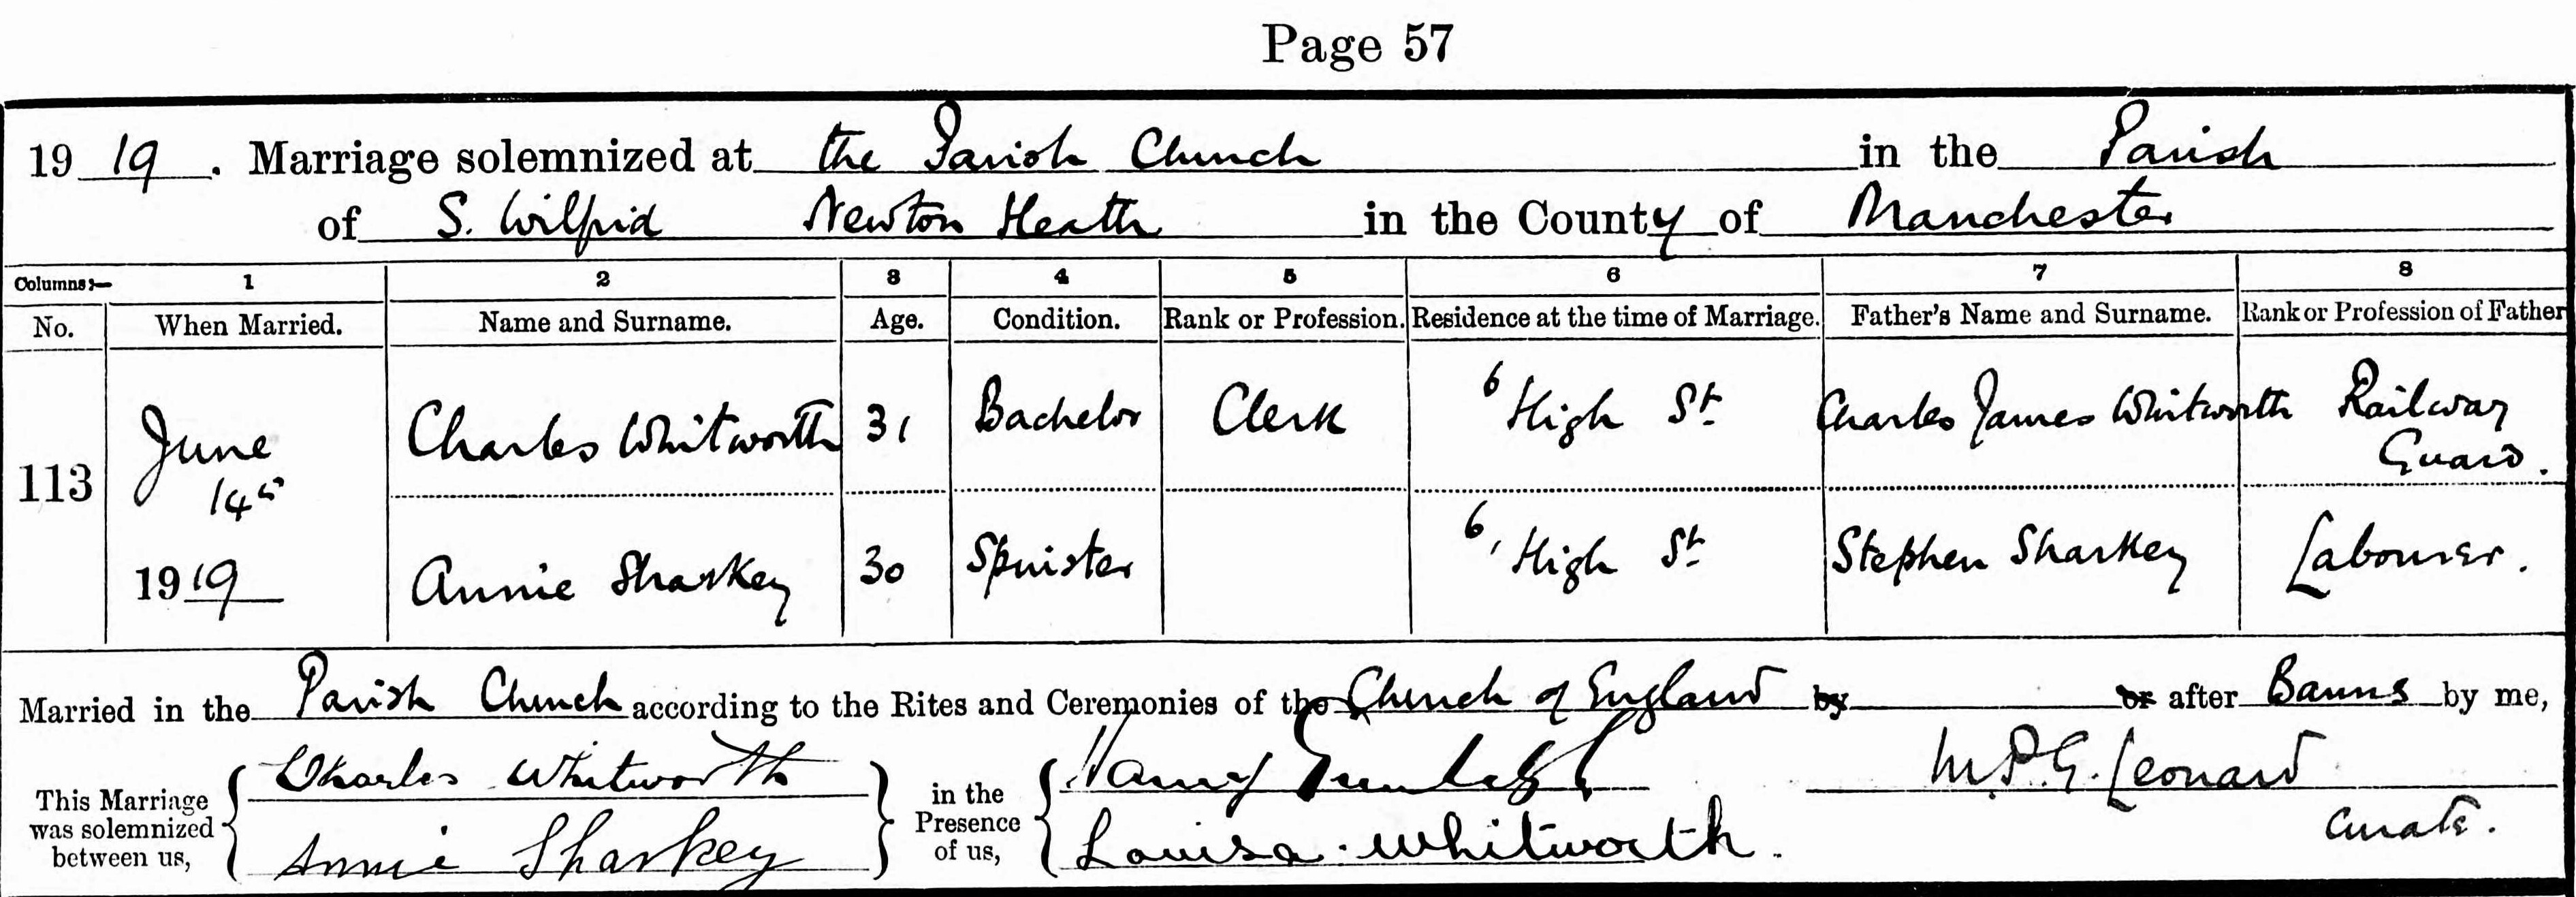 Page 57
19 19. Marriage solemnized at the Parish Church in the Parish
of S. Wilfrid Newton Heath in the County of Manchester
Columns:— 1 2 3 4 5 6 7 8
No. When Married. Name and Surname. Age. Condition. Rank or Profession. Residence at the time of Marriage. Father's Name and Surname. Rank or Profession of Father
113 June 14th 1919
Charles Whitworth 31 Bachelor Clerk 6 High St. Charles James Whitworth Railway Guard.
Annie Sharkey 30 Spinster 6, High St. Stephen Sharkey Labourer.
Married in the Parish Church according to the Rites and Ceremonies of the Church of England by or after Banns by me,
This Marriage was solemnized between us,
Charles Whitworth
Annie Sharkey
in the Presence of us,
Harry
Louisa Whitworth.
M.P.G. Leonard
Curate.